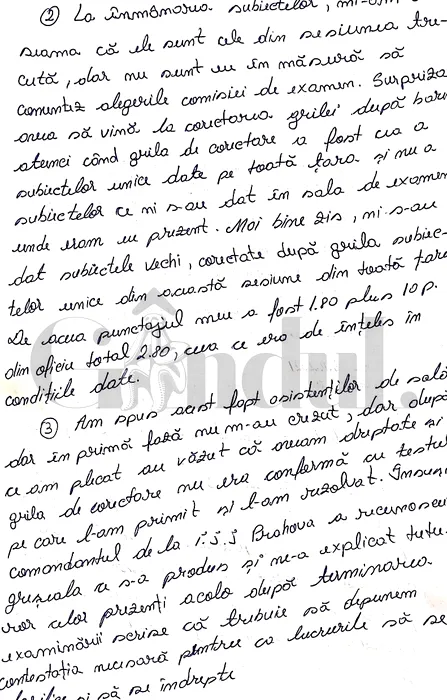 ② La înmânarea subiectelor, mi-am
seama că ele sunt cele din sesiunea tre-
cută, dar nu sunt eu în măsură să
comentez alegerile comisiei de examen. Surpriza
avea să vină la corectarea grilei după bare
atenci când grila de corectare a fost cea a
subiectelor unice date pe toată țara și nu a
subiectelor ce mi s-au dat în sala de examen
unde eram eu prezent. Mai bine zis, mi s-au
dat subiectele vechi, corectate după grila subiec-
telor unice din această sesiune din toată țara
De aceea punctajul meu a fost 1.80 plus 10 p.
din oficiu total 2.80, ceea ce era de înțeles în
condițiile date.
Gândul.
③ Am spus acest fapt asistenților de sală
dar în primă fază nu m-au crezut, dar după
ce am plecat au văzut că aveam dreptate și
grila de corectare nu era conformă cu testul
pe care l-am primit și l-am rezolvat. Însuși
comandantul de la i.j.j Prahova a recunoscut
greșeala ce s-a produs și ne-a explicat tutu-
ror celor prezenți acolo după terminarea
examinării scrise că trebuie să depunem
contestația necesară pentru ca lucrurile să se
și să se îndrepte